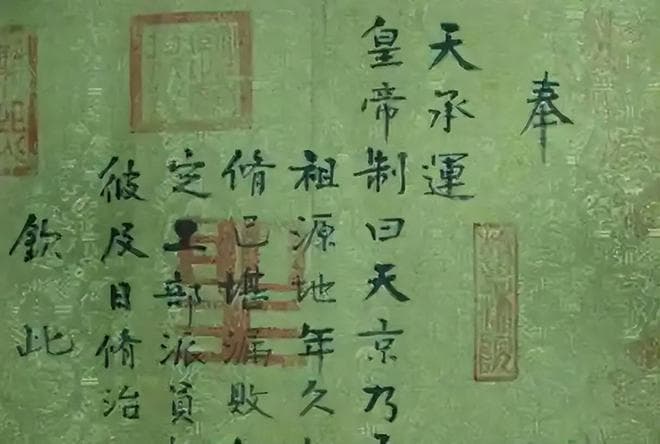 奉
天承運
皇帝制曰天京乃
祖源地年久
脩已堪漏敗
定工部派員
彼及日脩治
欽此